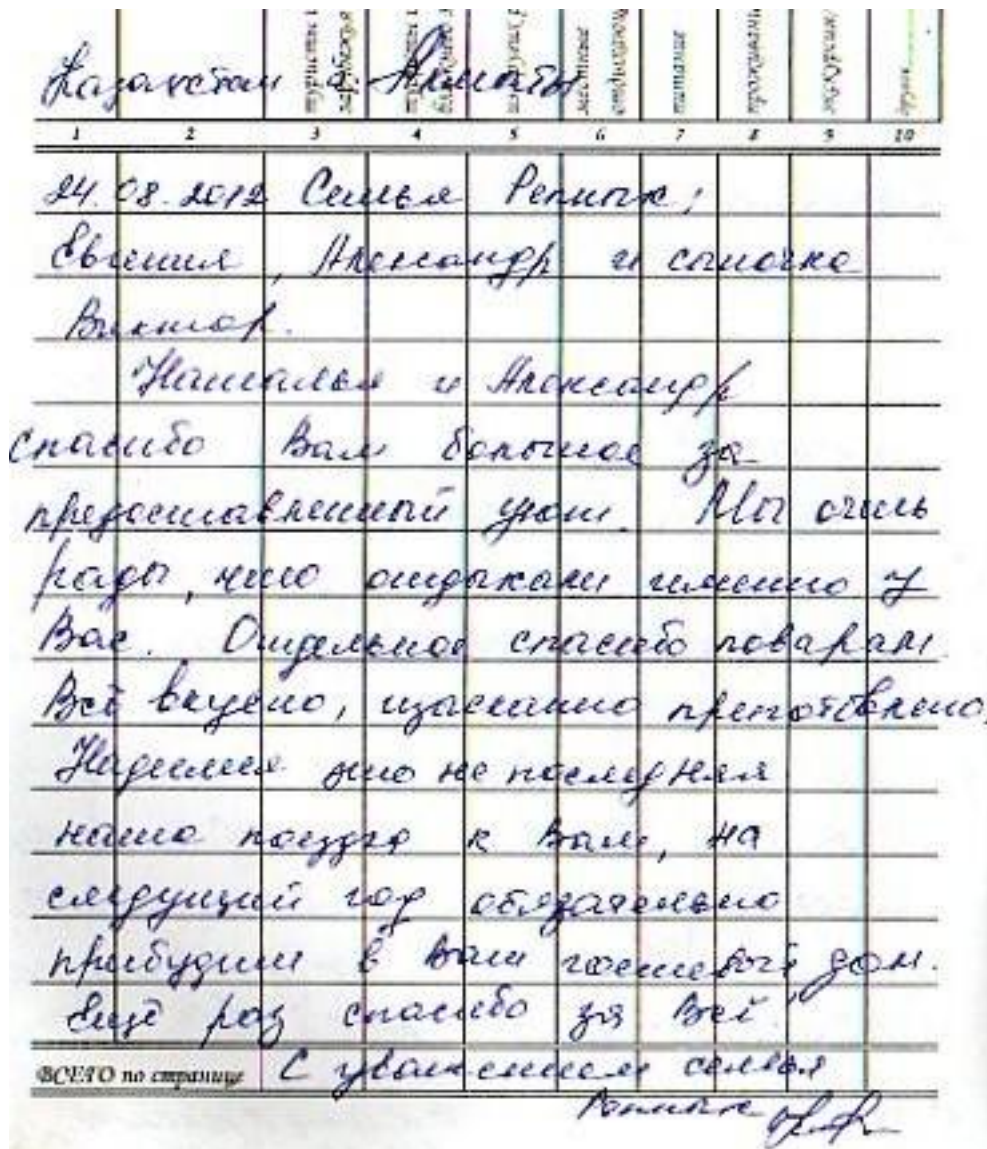 туристы и местные питание проживание экскурсии другие
Казахстан г. Алматы
1 2 3 4 5 6 7 8 9 10
24.08.2012 Семья Репных;
Евгения, Александр и сыночка
Виктор.
Наталья и Александр
спасибо Вам большое за
предоставленный уют. Мы очень
рады, что отдыхали именно у
Вас. Отдельное спасибо поварам.
Всё вкусно, изысканно приготовлено,
Надеемся это не последняя
наша поездка к Вам, на
следующий год обязательно
прибудим в Ваш гостевой дом.
Ещё раз спасибо за всё
ВСЕГО по странице С уважением семья